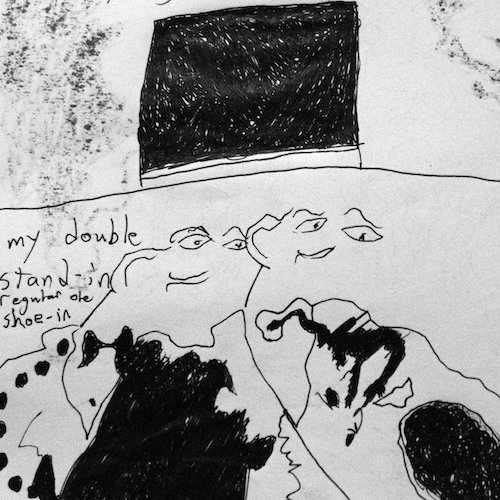 my double
stand-in
regular ole
shoe-in